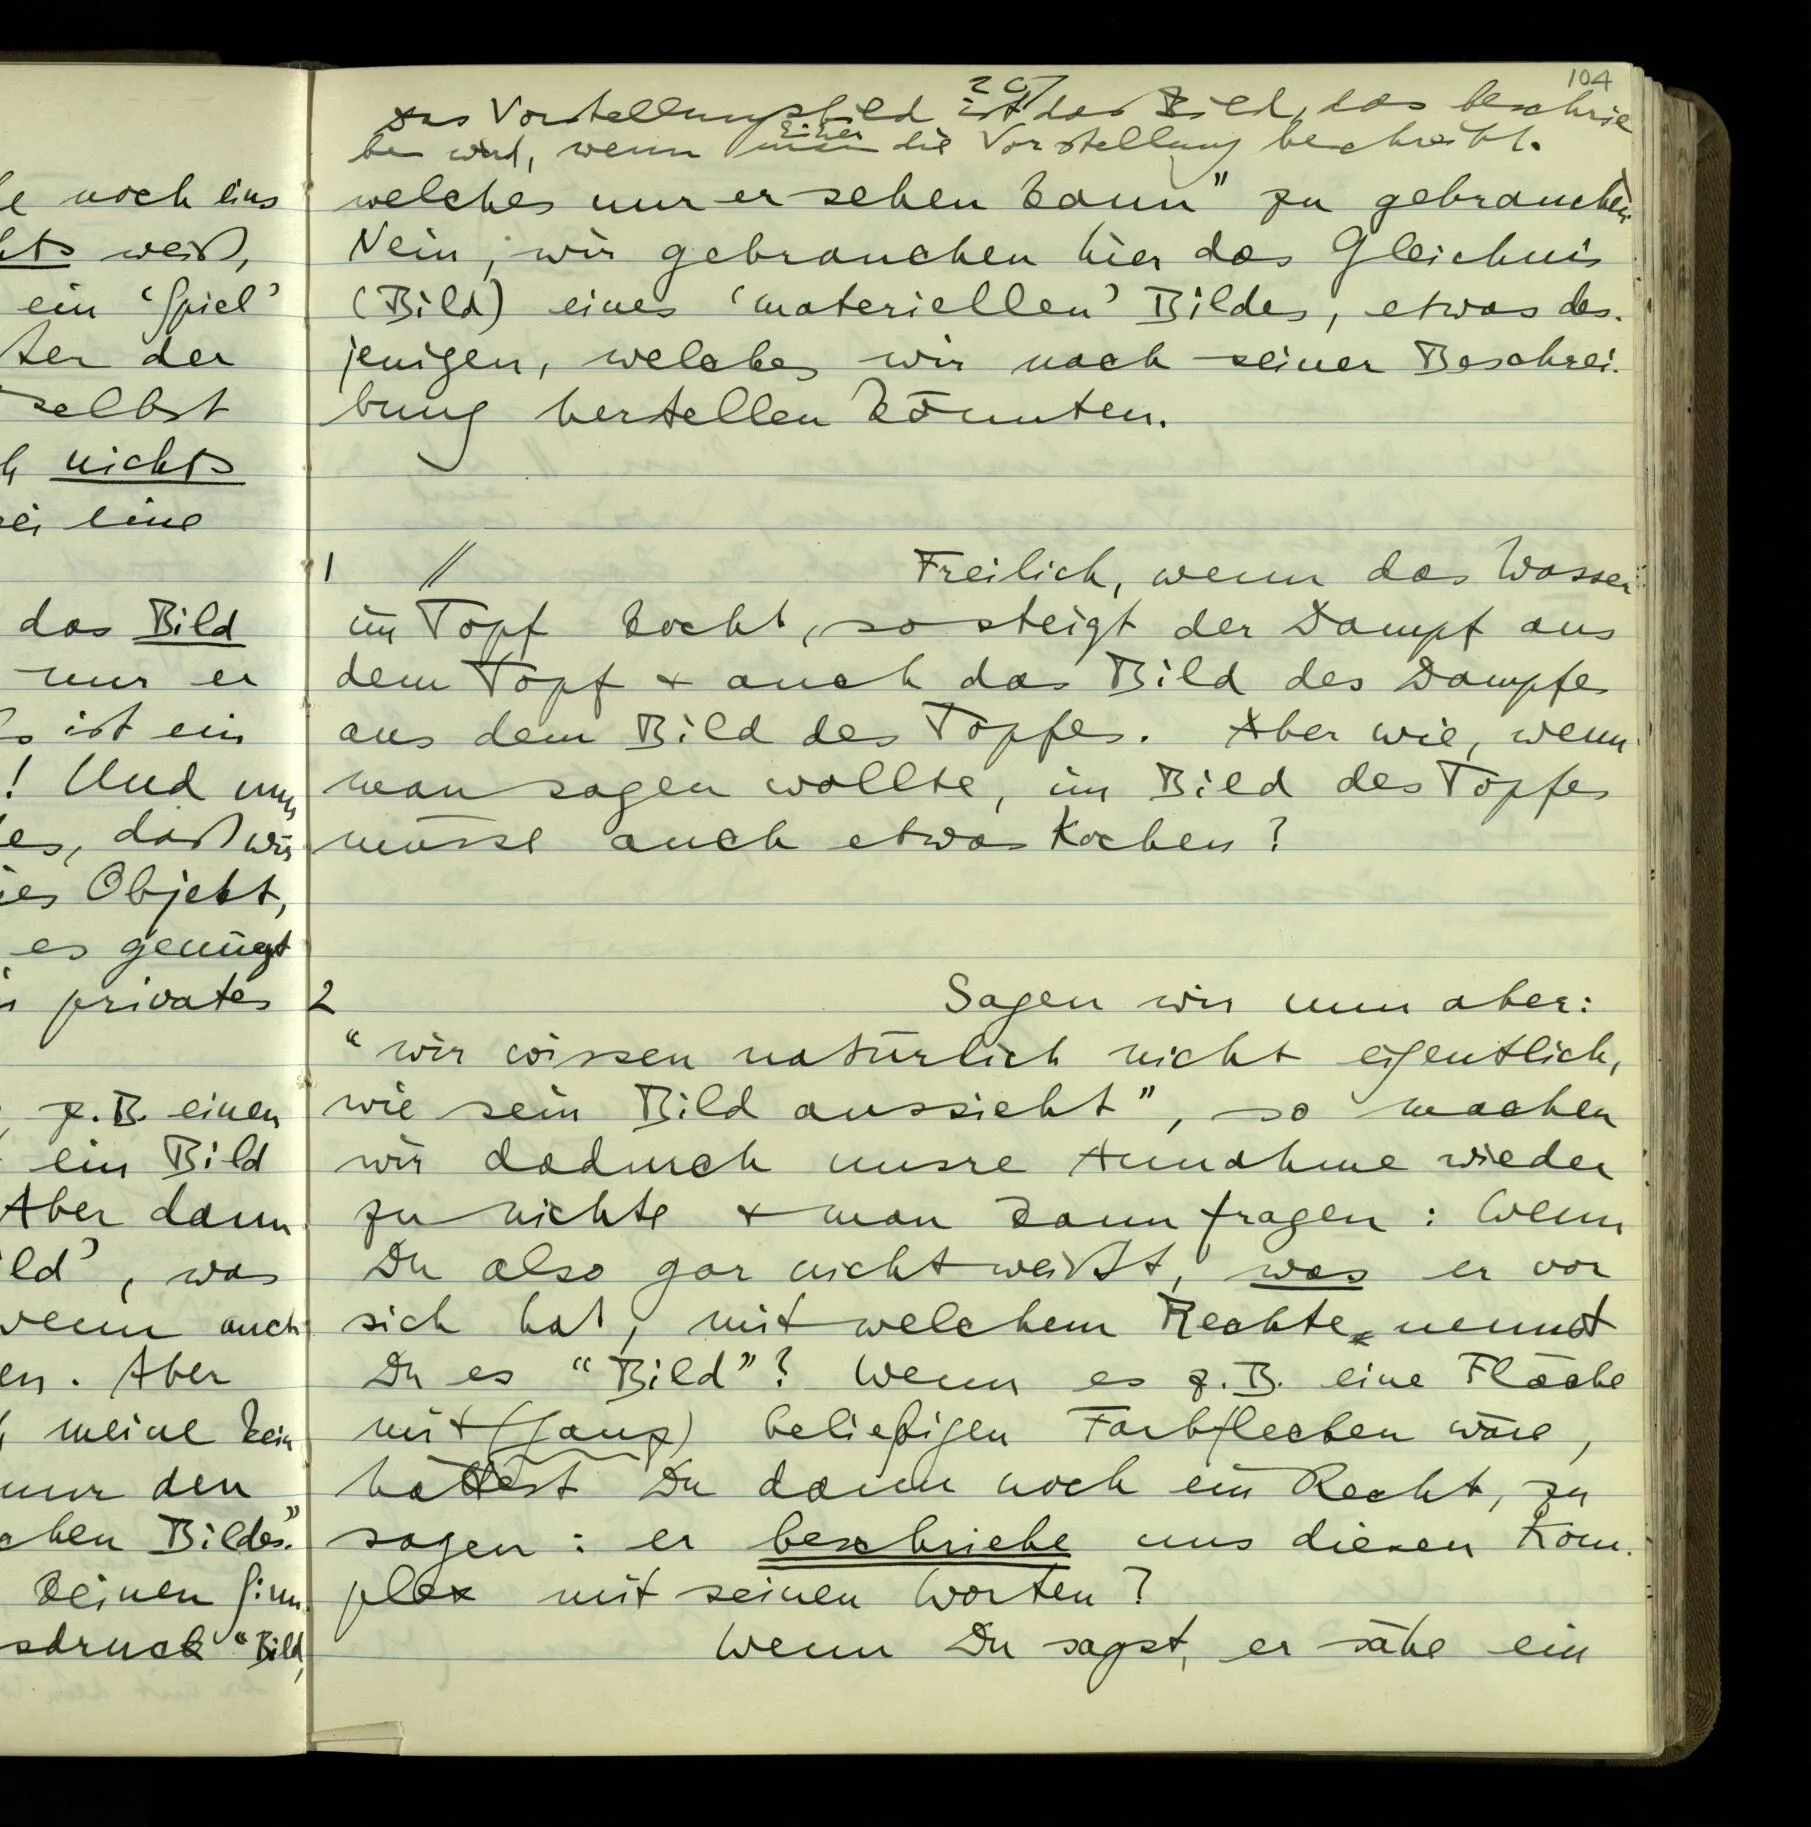 le noch eins
hts weiß,
ein ‘Spiel’
ter der
selbst
h nichts
ei eine
das Bild
nur er
s ist ein
! Und nun
es, daß wir
ies Objekt,
es genügt
privates
z.B. einen
ein Bild
Aber dann
ld’, was
wenn auch
en. Aber
meine kein
nur den
chen Bildes.”
keinen Sinn
sdruck “Bild,
104
Das Vorstellungsbild ist das Bild, das beschrie
ben wird, wenn man Einer die Vorstellung beschreibt.
welches nur er sehen kann” zu gebrauchen.
Nein, wir gebrauchen hier das Gleichnis
(Bild) eines ‘materiellen’ Bildes, etwas des-
jenigen, welches wir nach seiner Beschrei-
bung herstellen könnten.
1 // Freilich, wenn das Wasser
im Topf kocht, so steigt der Dampf aus
dem Topf & auch das Bild des Dampfes
aus dem Bild des Topfes. Aber wie, wenn
man sagen wollte, im Bild des Topfes
müsse auch etwas kochen?
2 Sagen wir nun aber:
“wir wissen natürlich nicht eigentlich,
wie sein Bild aussieht”, so machen
wir dadurch unsre Annahme wieder
zu nichte & man kann fragen: Wenn
Du also gar nicht weißt, was er vor
sich hat, mit welchem Rechte nennst
Du es “Bild”? Wenn es z.B. eine Fläche
mit (ganz) beliebigen Farbflecken wäre,
hättest Du dann noch ein Recht, zu
sagen: er beschriebe uns diesen Kom-
plex mit seinen Worten?
Wenn Du sagst, er sähe ein